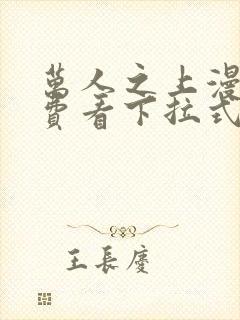 萬人之上漫
費看下拉式
王長慶